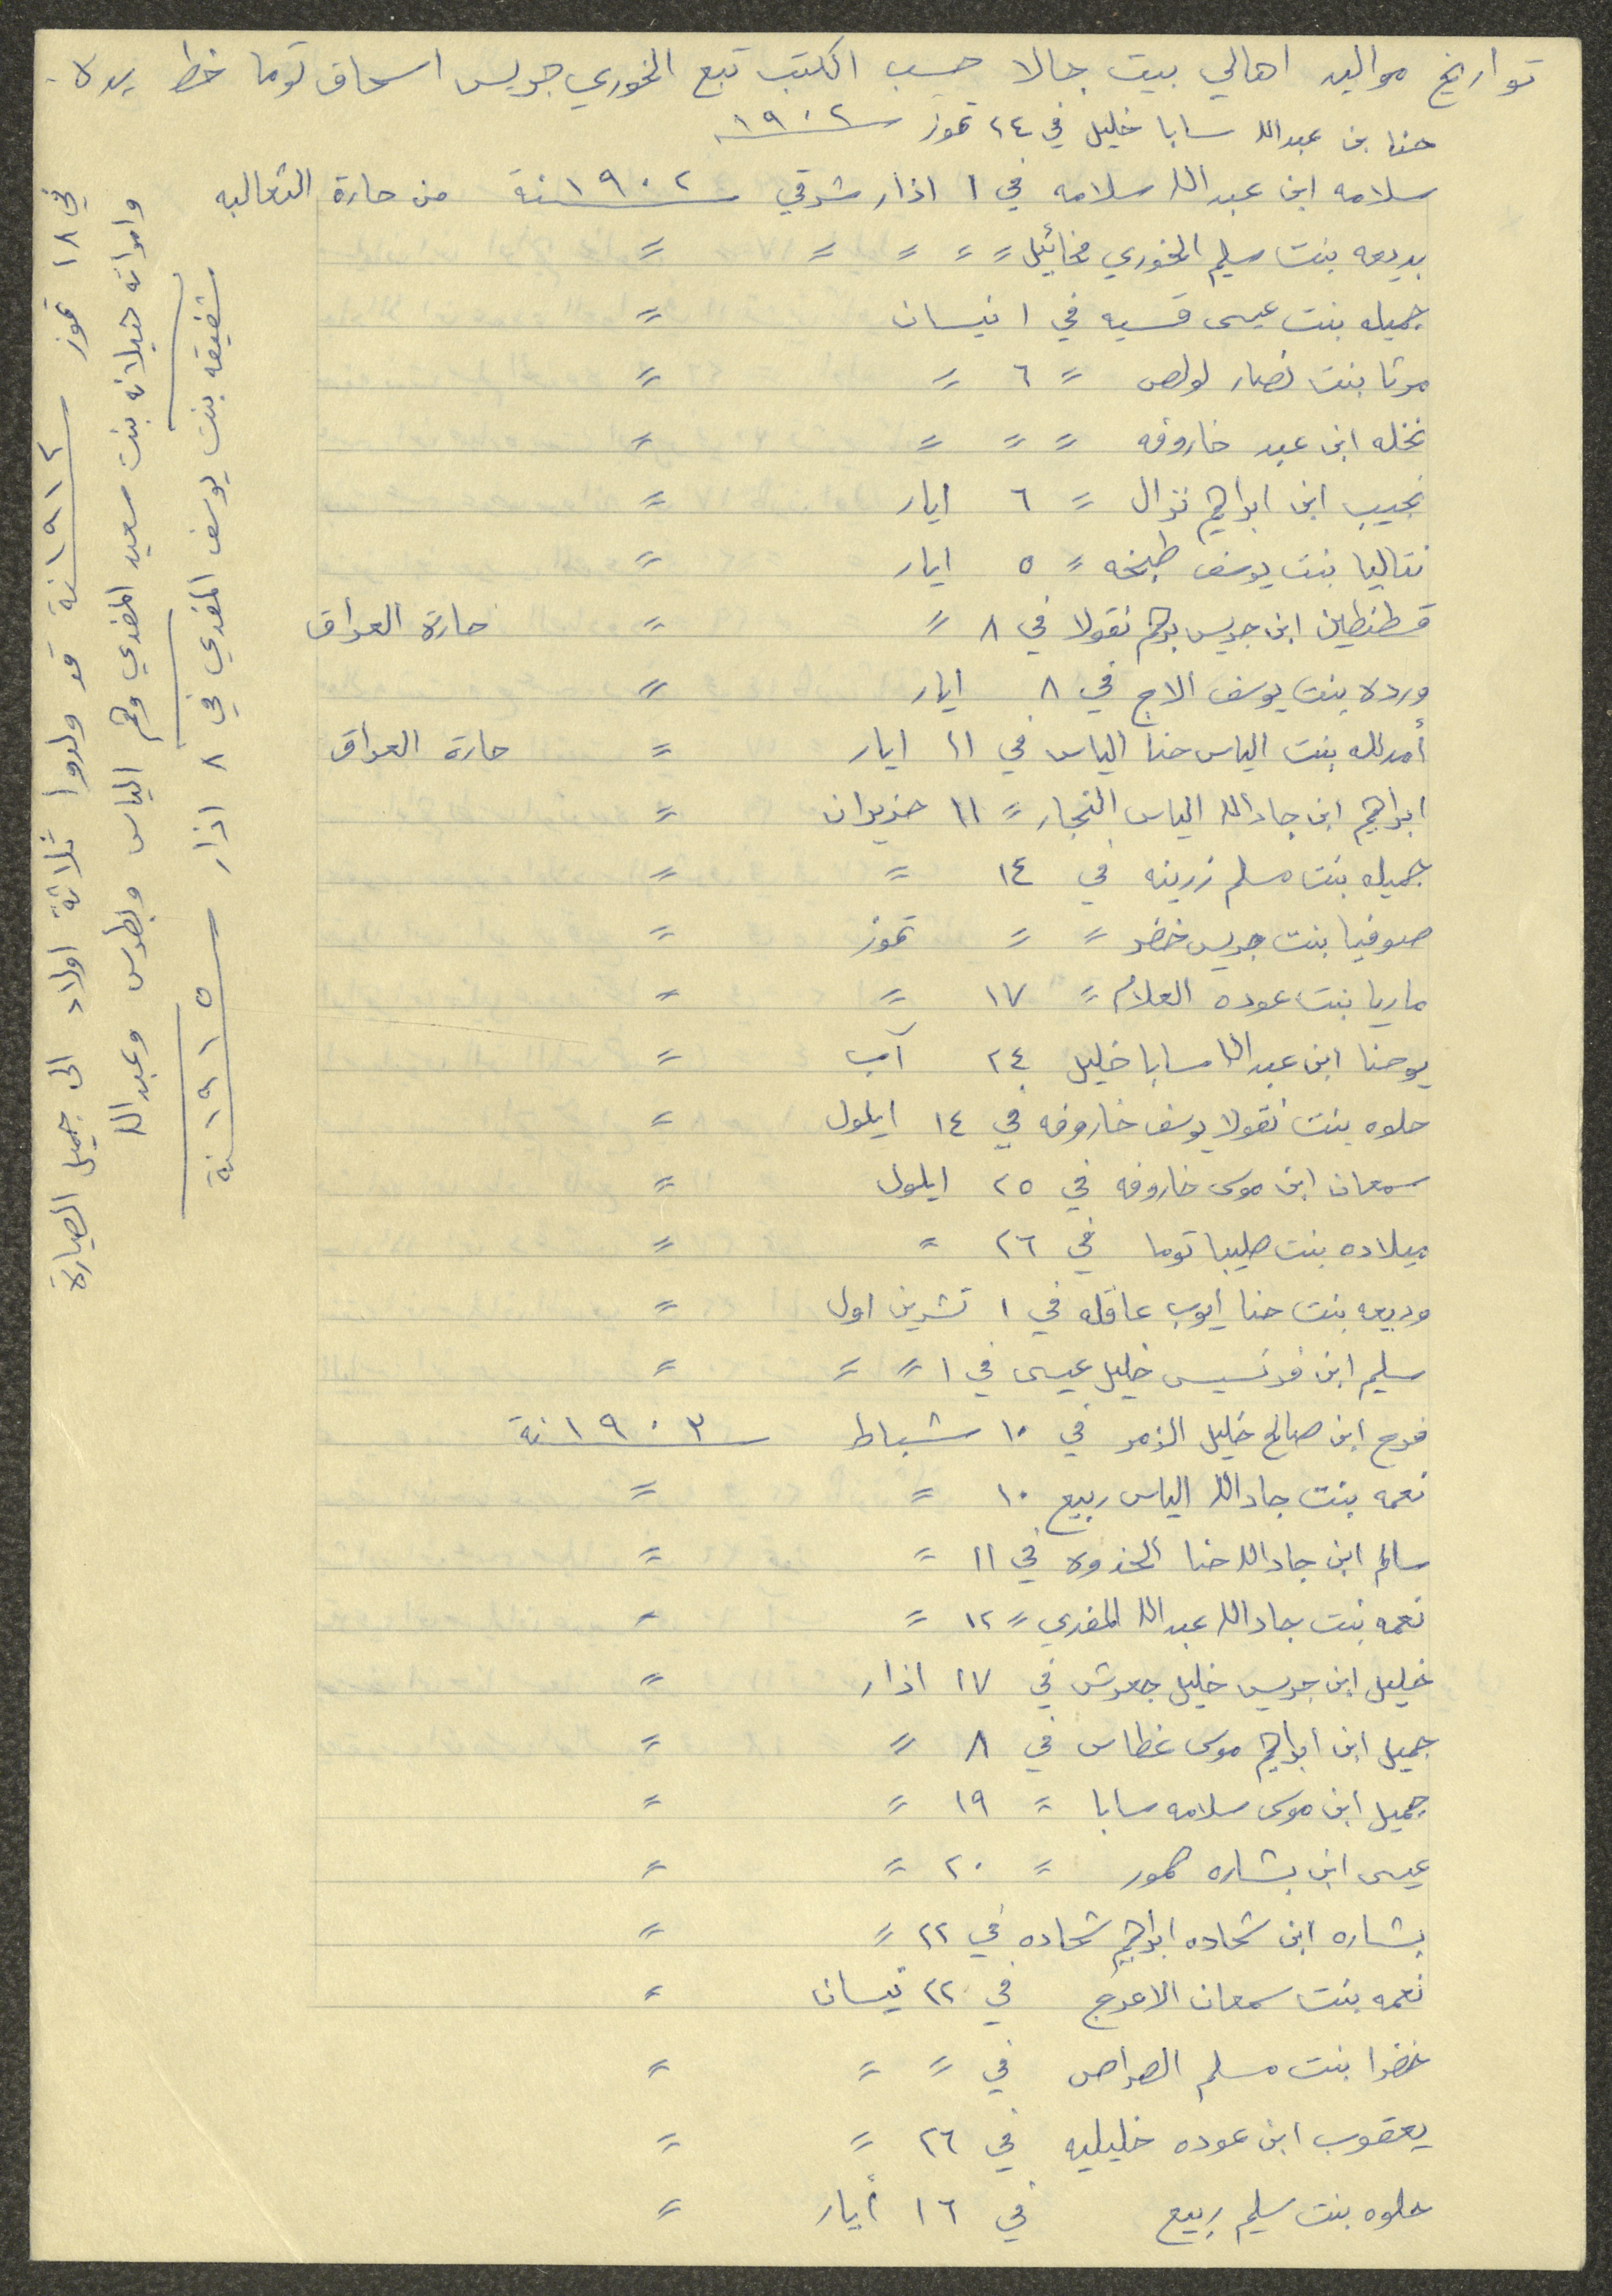 تواريخ مواليد اهالي بيت جالا حسب الكتب تبع الخوري جريس اسحاق توما خط يده.
حنا بن عبدالله سابا خليل في ٢٤ تموز سنة ١٩٠٢
سلامه ابن عبدالله سلامه في ١ اذار شرقي سنة ١٩٠٢ من حارة الثعالبه
بديعه بنت سليم الخوري مخائيل 〃 〃 〃 〃 〃
جميله بنت عيسى قسيه في ١ نيسان 〃
مرتا بنت نصار لولص 〃 ٦ 〃 〃
نخله ابن عبد خاروفه 〃 〃 〃 〃
نجيب ابن ابراهيم نزال 〃 ٦ ايار 〃
نتاليا بنت يوسف طبخه 〃 ٥ ايار 〃
قسطنطين ابن جريس برهم نقولا في ٨ 〃 〃 حارة العراق
ورده بنت يوسف الاج في ٨ ايار 〃
بنت الياس حنا الياس في ١١ ايار 〃 حارة العراق
ابراهيم ابن جادالله الياس النجار 〃 ١١ حزيران 〃
جميله بنت مسلم زرينه في ١٤ 〃 〃
صوفيا بنت جريس خضر 〃 〃 تموز 〃
ماريا بنت عوده العلام 〃 ١٧ 〃 〃
يوحنا ابن عبدالله سابا خليل ٢٤ آب 〃
حلوه بنت نقولا يوسف خاروفه في ١٤ ايلول 〃
سمعان ابن موسى خاروفه في ٢٥ ايلول 〃
ميلاده بنت صليبا توما في ٢٦ 〃 〃
وديعه بنت حنا ايوب عاقله في ١ تشرين اول 〃
سليم ابن فرنسيس خليل عيسى في ١ 〃 〃 〃
فرح ابن صالح خليل الزمر في ١٠ شباط سنة ١٩٠٣
نعمه بنت جادالله الياس ربيع ١٠ 〃 〃
سالم ابن جادالله حنا الحذوه في ١١ 〃 〃
نعمه بنت جادالله عبدالله المفدي 〃 ١٢ 〃 〃
خليل ابن جريس خليل جعرش في ١٧ اذار 〃
جميل ابن ابراهيم موسى غطاس في ٨ 〃 〃
جميل ابن موسى سلامه سابا 〃 ١٩ 〃 〃
عيسى ابن بشاره قمور 〃 ٢٠ 〃 〃
بشاره ابن شحاده ابراهيم شحاده في ٢٢ 〃 〃
نعمه بنت سمعان الاعرج في ٢٢ نيسان 〃
خضرا بنت مسلم الصراص في 〃 〃 〃
يعقوب ابن عوده خليليه في ٢٦ 〃 〃
حلوه بنت سليم ربيع في ١٦ أيار 〃
في ١٨ تموز سنة ١٩١٢ قد ولدوا ثلاثة اولاد الى جميل الصيارة
وامراته بنت سعيد المفدي وهم الياس وبطرس وعبدالله
شفيقه بنت يوسف المفدي في ٨ اذار سنة ١٩١٥